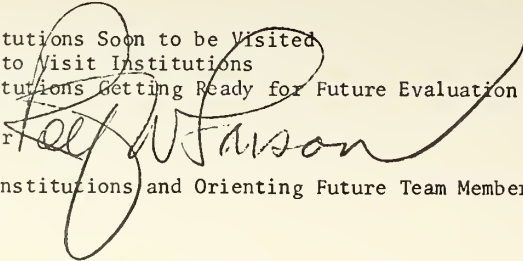 tutions Soon to be Visited
to Visit Institutions
tutions Getting Ready for Future Evaluation
r
nstitutions and Orienting Future Team Member